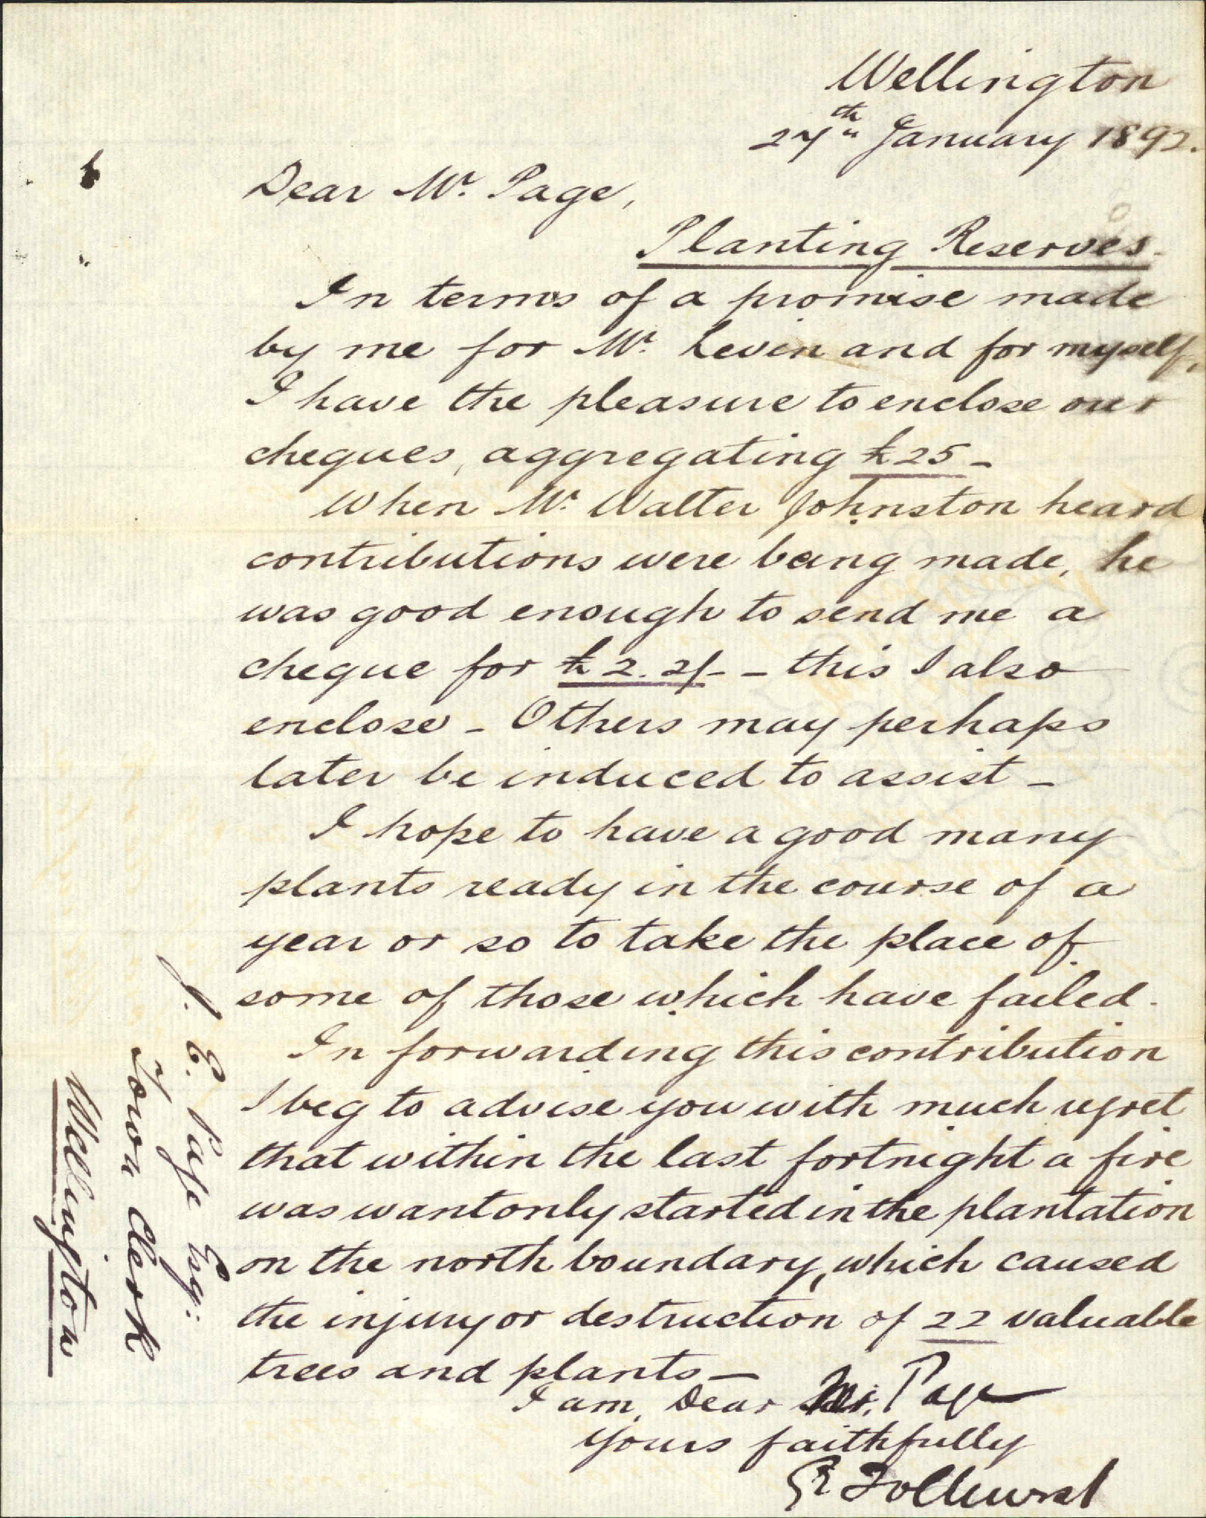 Wellington
27th January 1892.
Dear Mr. Page,
Planting Reserves.
In terms of a promise made
by me for Mr. Levin and for myself,
I have the pleasure to enclose our
cheques, aggregating £25 –
When Mr. Walter Johnston heard
contributions were being made, he
was good enough to send me a
cheque for £2.2/- – this I also
enclose – Others may perhaps
later be induced to assist –
I hope to have a good many
plants ready in the course of a
year or so to take the place of
some of those which have failed.
In forwarding this contribution
I beg to advise you with much regret
that within the last fortnight a fire
was wantonly started in the plantation
on the north boundary, which caused
the injury or destruction of 22 valuable
trees and plants –
I am, Dear Mr. Page
Yours faithfully
G Tolhurst
J. E. Page Esq:
Town Clerk
Wellington